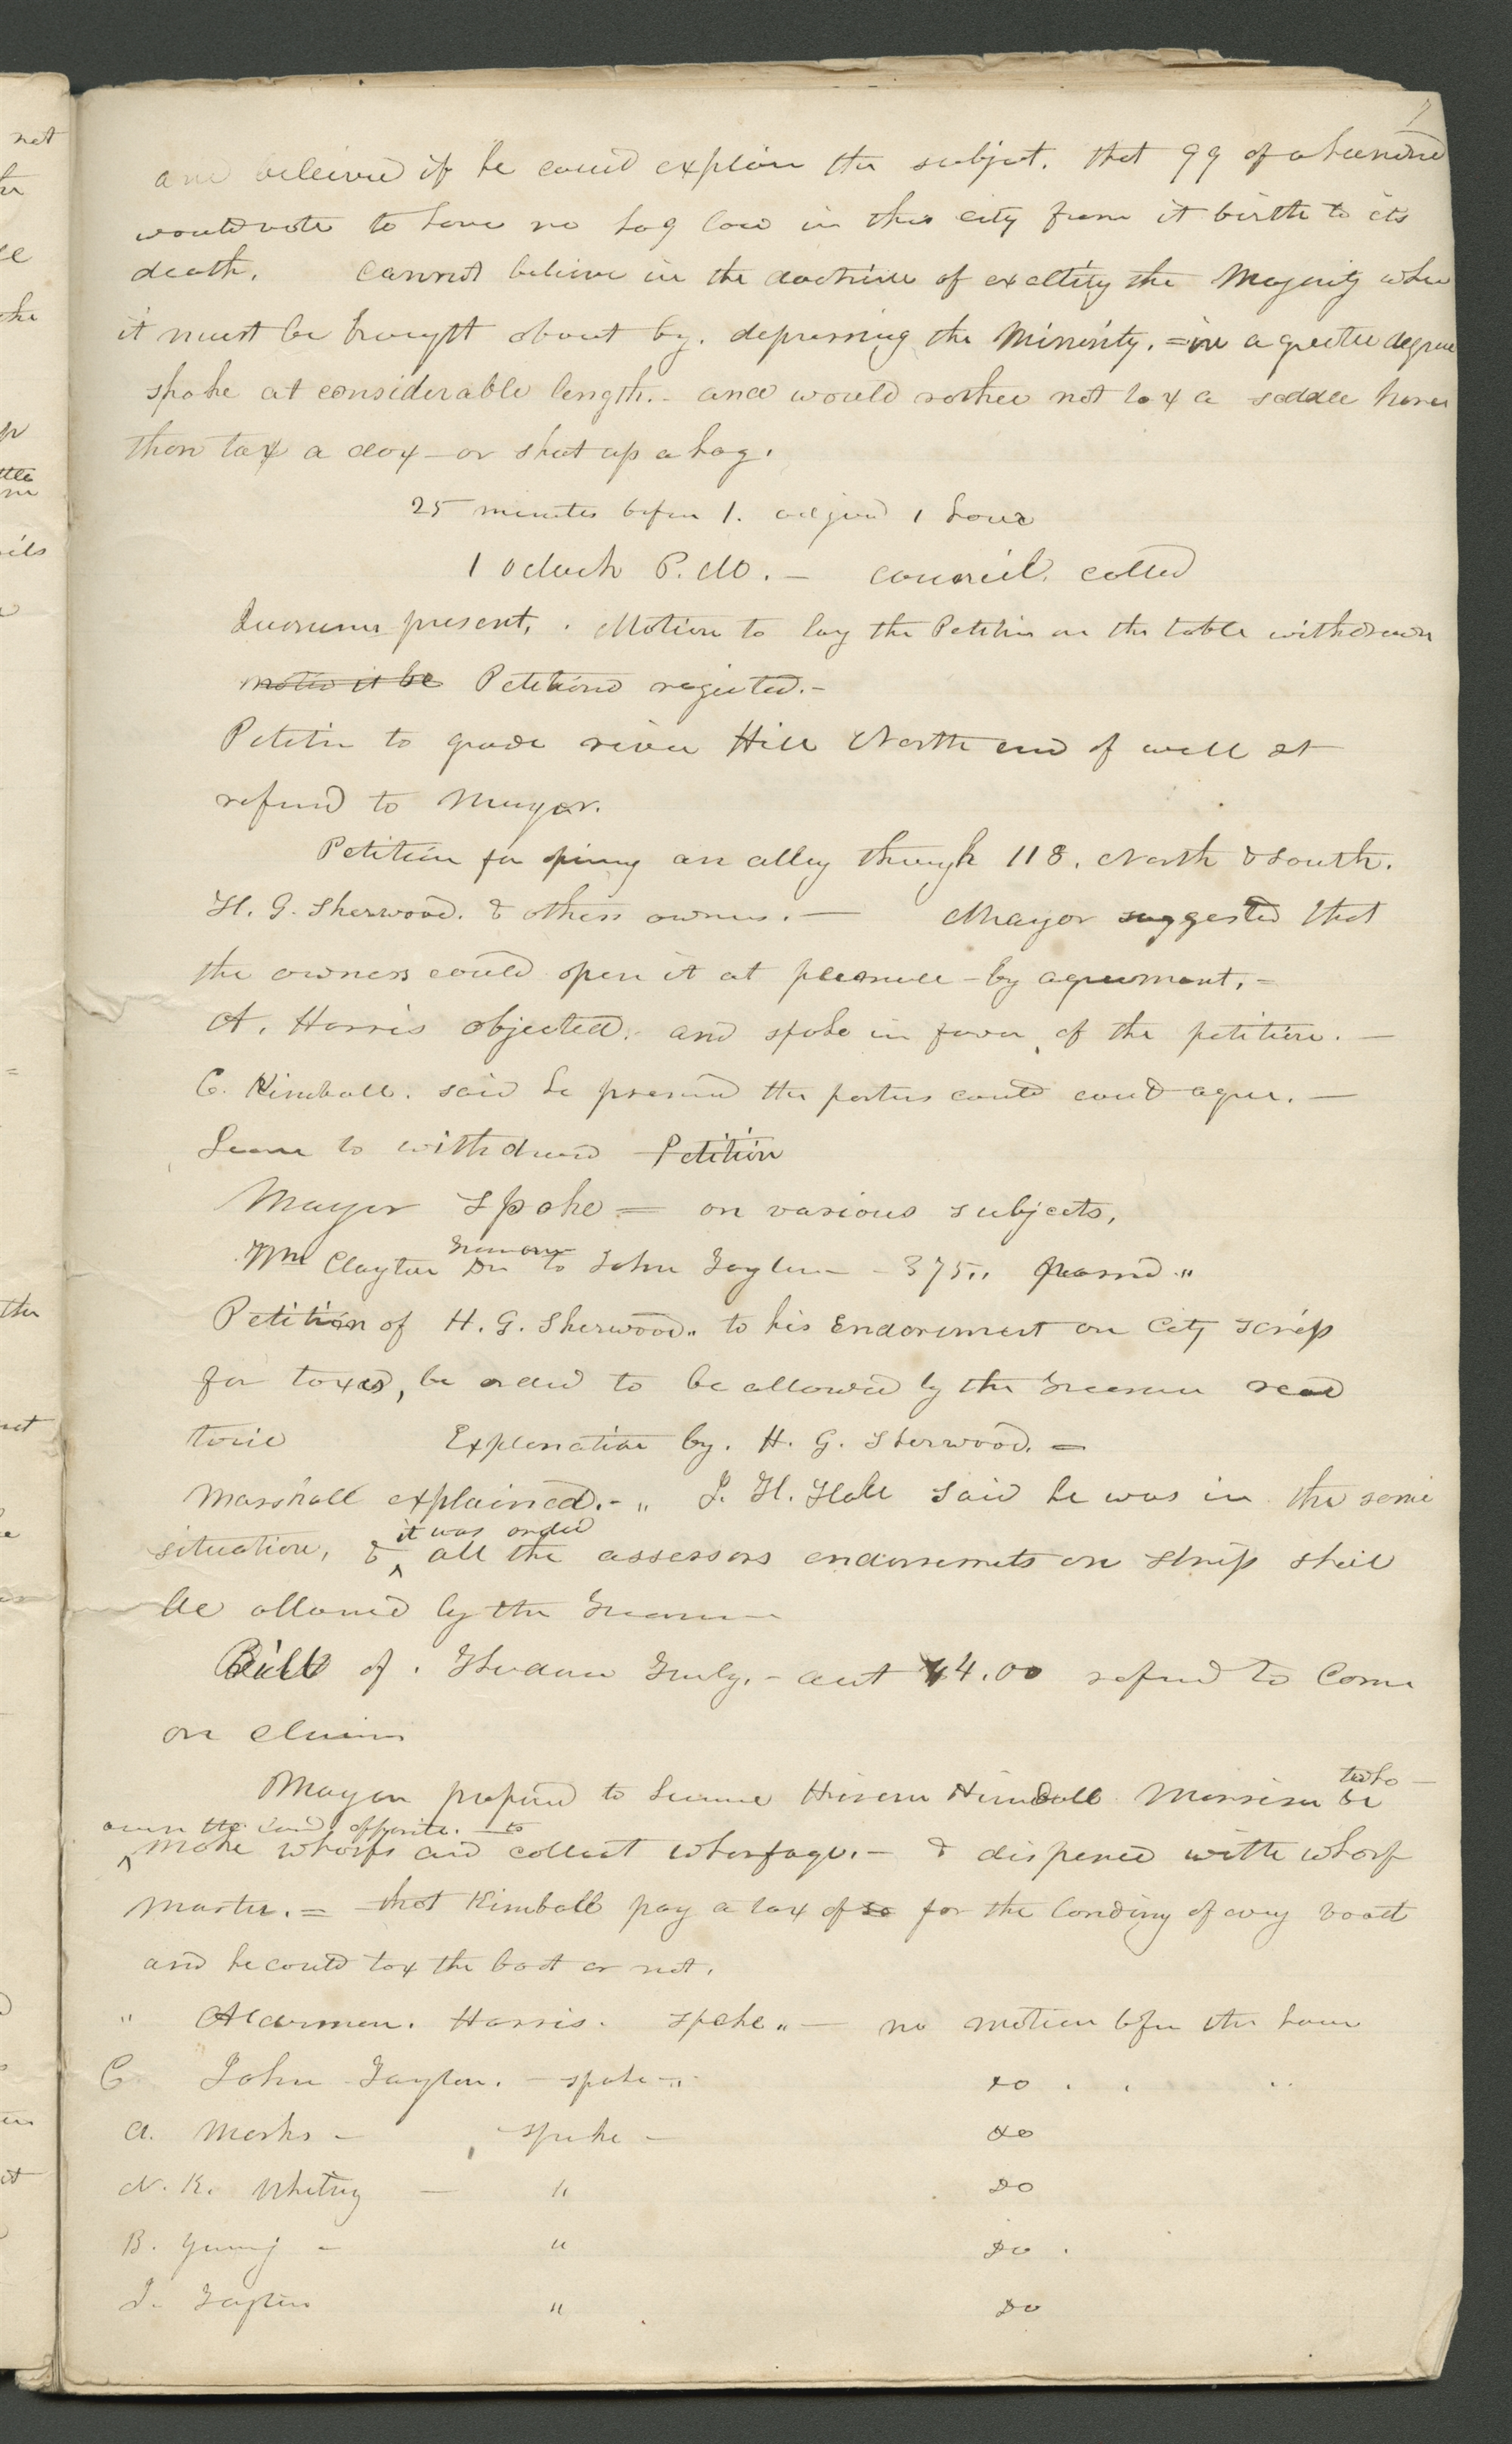 7
and beleived if he could explain the subject. that 99 of a hundred
would vote to have no hog law in this city from it birth to its
death. Cannot believe in the doctrine of exalting the Majority when
it must be brought about by. depressing the Minority. = in a greater degree
spoke at considerable length.- and would rather not tax a saddle horse
than tax a dog - or shut up a hog.
25 minutes before 1. adjournd 1 hour
1 oclock P.M. - council. called
Quorum present, . Motion to lay the Petition on the table withdrawn
motion it be Petiond rejected.-
Petitin to grade river Hill North end of well st
referred to Mayor.
Petition for opning an alley through 118. North & South.
H. G. Sherwood. & others owners. - Mayor suggested that
the owners could open it at pleasure - by agreement. -
A. Harris objected. and spoke in favor of the petition. -
C. Kimball. said he presumed the parties could coud agree. -
Leave to withdraw Petition
Mayor Spoke = on various subjects,
Wm Clayton Dr to John Taylor - 375,, passed "
Petition of H. G. Sherwood. to his Endorsement on City scrip
for taxes, be orderd to be allowed by the Treasurer read
twice Explanation by. H. G. Sherwood. =
Marshall explained.- " J. H. Hale said he was in the same
it was orderd
situation, & all the assessors endorsements on scrip shall
be allowed by the Treasurer
Bill of . Theodore Turly. - act 4.00 referd to Com
on claims
Mayor proposed to license Hiram Kimball Morrison
who -
own the land opposite. to
make wharfs and collect wharfage. - & dispence with wharf
master. = that Kimball pay a tax of so for the landing of every boat
and he could tax the boat or not.
" Alderman. Harris. spoke " - no motion before the house
C John Taylor. - spoke - " do . . "
A. Marks - spoke - do
N. K. Whitney - " do
B. Young - " do .
J. Taylor " do